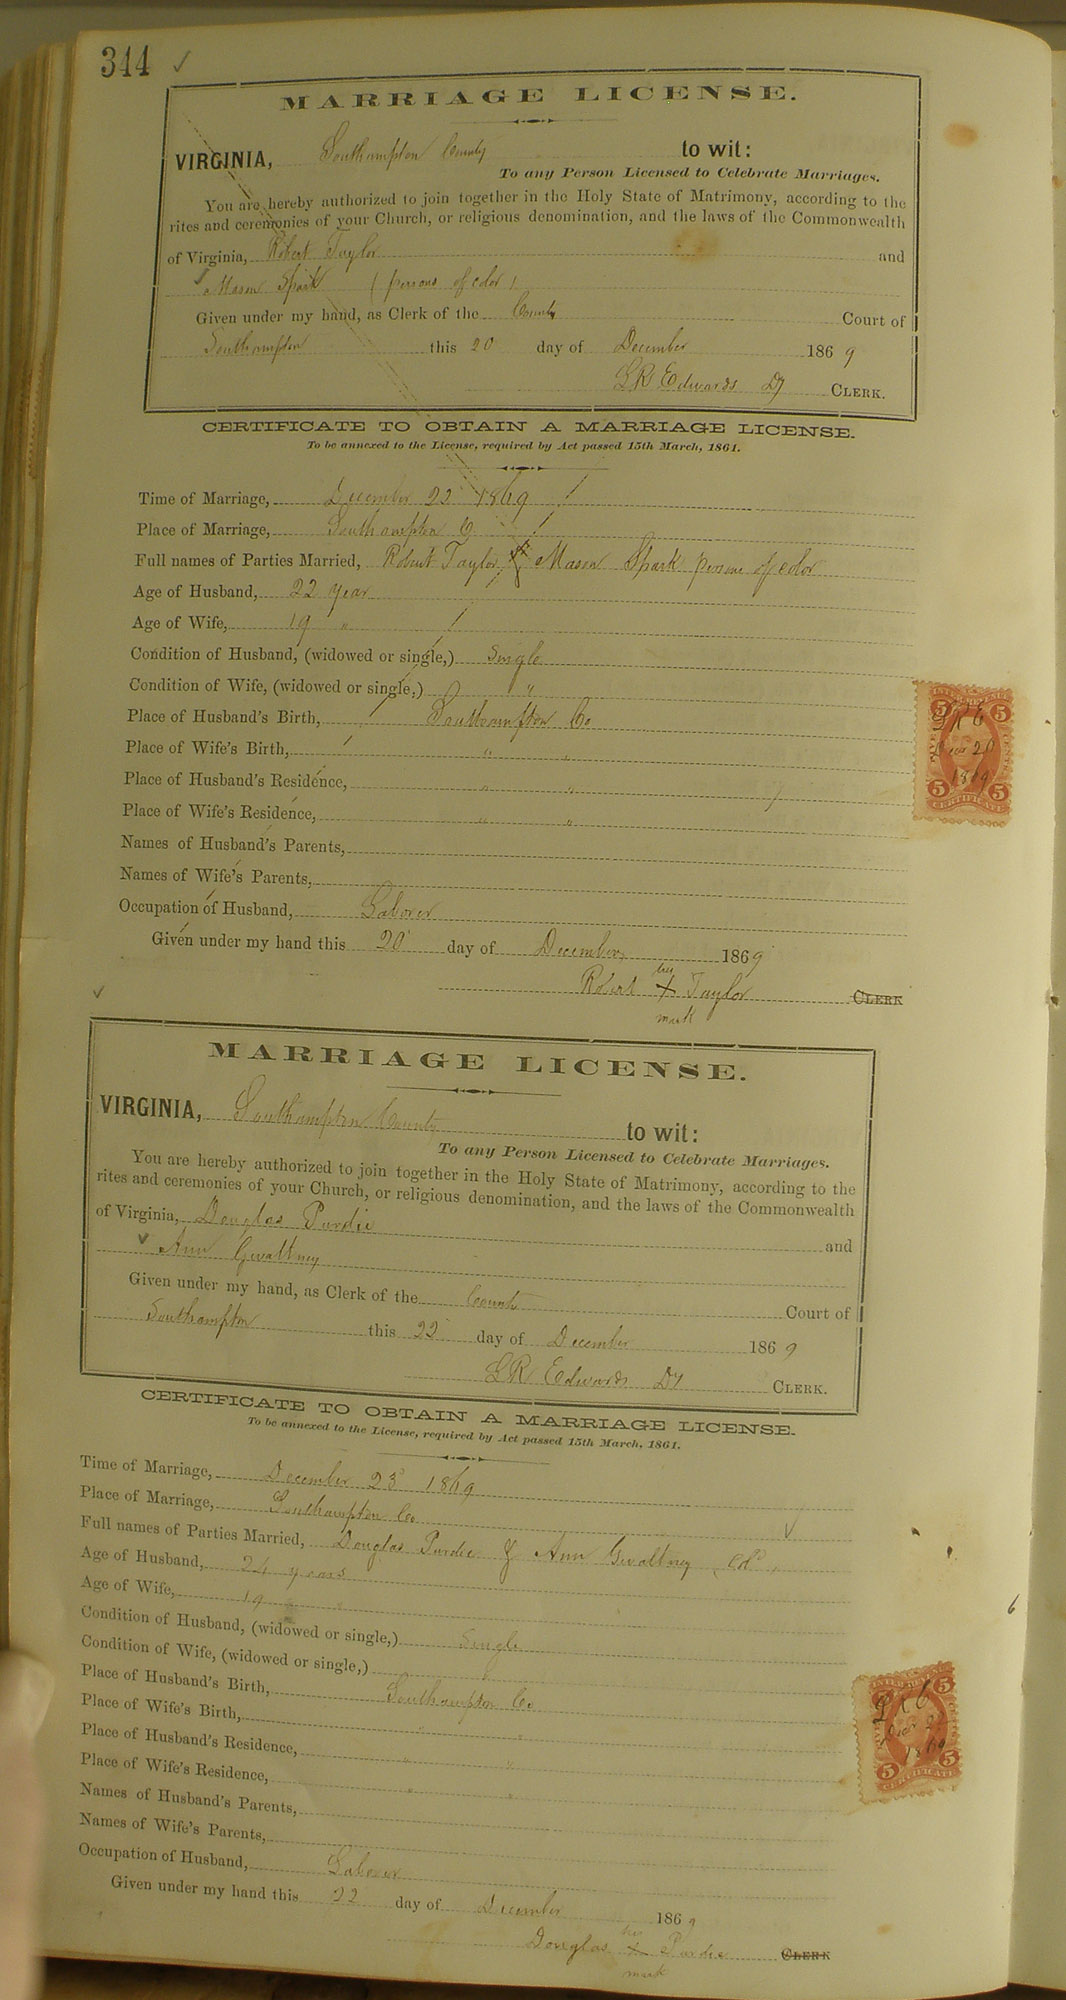 344
MARRIAGE LICENSE.
VIRGINIA, Southampton County to wit:
To any Person Licensed to Celebrate Marriages.
You are hereby authorized to join together in the Holy State of Matrimony, according to the
rites and ceremonies of your Church, or religious denomination, and the laws of the Commonwealth
of Virginia, Robert Taylor and
Mason Spark (persons of color)
Given under my hand, as Clerk of the County Court of
Southampton this 20 day of December 1869
LR Edwards Dy CLERK.
CERTIFICATE TO OBTAIN A MARRIAGE LICENSE.
To be annexed to the License, required by Act passed 15th March, 1861.
Time of Marriage, December 22 1869
Place of Marriage, Southampton C
Full names of Parties Married, Robert Taylor & Mason Spark persons of color
Age of Husband, 22 year
Age of Wife, 19 "
Condition of Husband, (widowed or single,) Single
Condition of Wife, (widowed or single,) "
Place of Husband's Birth, Southampton Co
Place of Wife's Birth, " "
Place of Husband's Residence, " "
Place of Wife's Residence, " "
Names of Husband's Parents,
Names of Wife's Parents,
Occupation of Husband, Laborer
Given under my hand this 20 day of December 1869
Robert his X mark Taylor CLERK
5 5
LRE
Dec 20
1869
5 5
CERTIFICATE
MARRIAGE LICENSE.
VIRGINIA, Southampton County to wit:
To any Person Licensed to Celebrate Marriages.
You are hereby authorized to join together in the Holy State of Matrimony, according to the
rites and ceremonies of your Church, or religious denomination, and the laws of the Commonwealth
of Virginia, Douglas Purdie and
Ann Gwaltney
Given under my hand, as Clerk of the County Court of
Southampton this 22 day of December 1869
LR Edwards Dy CLERK.
CERTIFICATE TO OBTAIN A MARRIAGE LICENSE.
To be annexed to the License, required by Act passed 15th March, 1861.
Time of Marriage, December 23 1869
Place of Marriage, Southampton Co
Full names of Parties Married, Douglas Purdie & Ann Gwaltney Cold
Age of Husband, 24 years
Age of Wife, 19 "
Condition of Husband, (widowed or single,) Single
Condition of Wife, (widowed or single,)
Place of Husband's Birth, Southampton Co
Place of Wife's Birth, " "
Place of Husband's Residence, " "
Place of Wife's Residence, " "
Names of Husband's Parents,
Names of Wife's Parents,
Occupation of Husband, Laborer
Given under my hand this 22 day of December 1869
Douglas his X mark Purdie CLERK
5 5
LRE
Dec
1869
5 5
CERTIFICATE